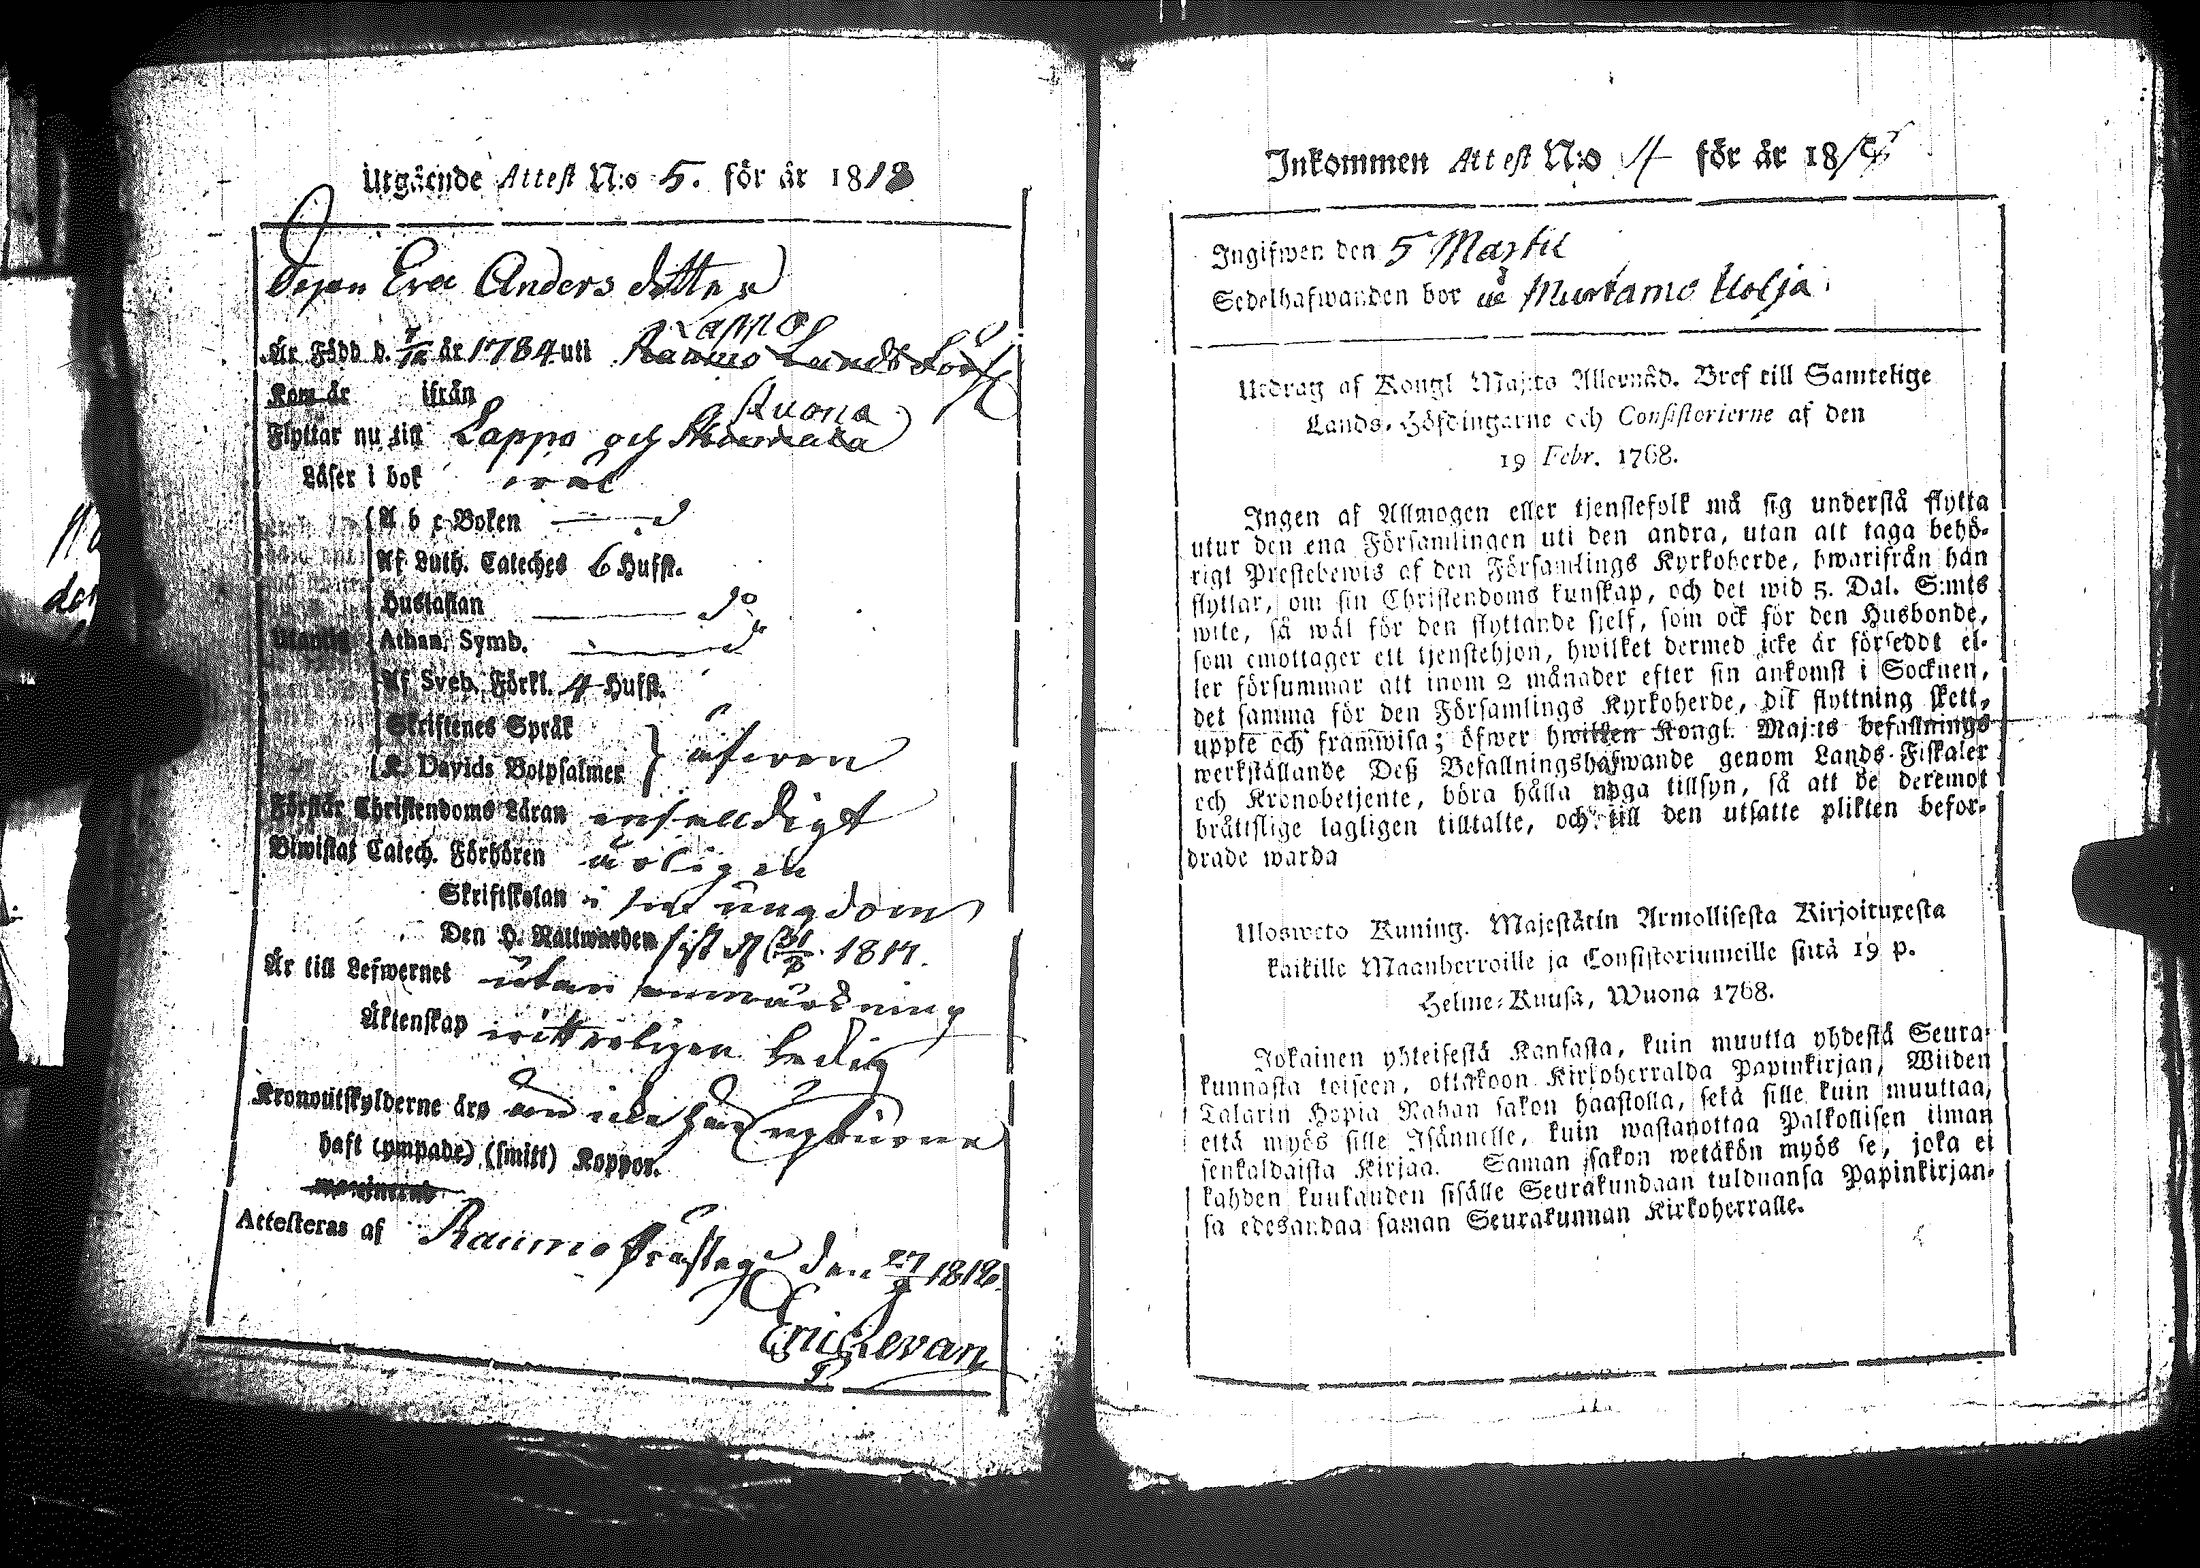 Utgående Attest N:o 5. för år 1818
Pigan Eva Anders dotter
Lappo
Är Född d. 7/12 år 1784 uti Raumo Lands Förs
Kom år ifrån
Ruona
Flyttar nu till Lappo och
Läser i bok wäl
A b c Boken d
Af Luth. Cateches 6 Hufst.
Hustaflan do
Utantil Athan. Symb. do
Af Sveb. Förkl. 4 Hufst.
Skriftenes Språk
K. Davids Botpsalmer äfwen
Förstår Christendoms Läran enfaldigt
Biwistat Catech. Förhören årligen
Skriftskolan i sin ungdom
Den H. Nattwarden sist d. 1817.
Är till Lefwernet utan anmärkning
Äktenskap ledig
Kronoutskylderne äro
haft (ympade) (smitt) Koppor.
Attesteras af Raumo Prästeg. den 27/2 1818.
Eric Levan
P.
Inkommen Attest N:o 4 för år 18
Ingifwen den 5 Martii
Sedelhafwanden bor på Murtamo Kolja
Utdrag af Kongl Maj:ts Allernåd. Bref till Samtelige
Lands-Höfdingarne och Consistorierne af den
19 Febr. 1768.
Ingen af Allmogen eller tjenstefolk må sig understå flytta
utur den ena Församlingen uti den andra, utan att taga behö-
rigt Prestebewis af den Församlings Kyrkoherde, hwarifrån han
flyttar, om sin Christendoms kunskap, och det wid 5. Dal. S:mts
wite, så wäl för den flyttande sjelf, som ock för den Husbonde,
som emottager ett tjenstehjon, hwilket dermed icke är försedt el-
ler försummar att inom 2 månader efter sin ankomst i Socknen,
det samma för den Församlings Kyrkoherde, dit flyttning skett,
uppte och framwisa; öfwer hwilken Kongl. Maj:ts befallnings
werkställande Deß Befallningshafwande genom Lands-Fiskaler
och Kronobetjente, böra hålla noga tillsyn, så att de deremot
bråttslige lagligen tilltalte, och till den utsatte plikten befor-
drade warda
Uloswetö Kuning. Majestätin Armollisesta Kirjoituxesta
kaikille Maanherroille ja Consistoriumeille siitä 19 p.
Helme-Kuusa, Wuona 1768.
Jokainen yhteisestä Kansasta, kuin muutta yhdestä Seura-
kunnasta toiseen, ottakoon Kirkoherralda Papinkirjan, Wiiden
Talarin Hopia Rahan sakon haastolla, sekä sille kuin muuttaa,
että myös sille Isännelle, kuin wastanottaa Palkollisen ilman
senkaldaista Kirjaa. Saman sakon wetäkön myös se, joka ei
kahden kuukauden sisälle Seurakundaan tulduansa Papinkirjan-
sa edesandaa saman Seurakunnan Kirkoherralle.